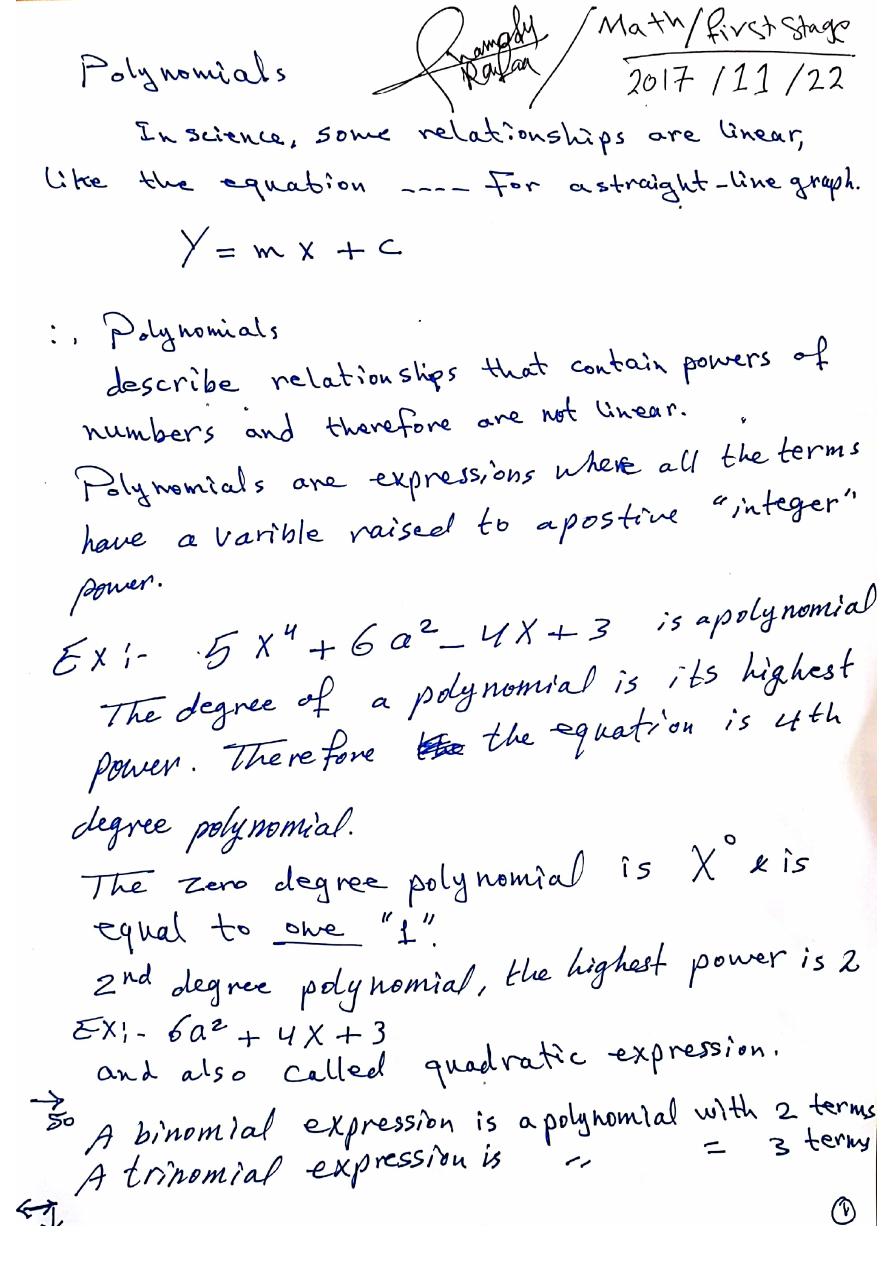 Polynomials
Math/first stage
2017/11/22
In science, some relationships are linear,
like the equation ---- for a straight-line graph.
Y = m x + c
:, Polynomials
describe relationships that contain powers of
numbers and therefore are not linear.
Polynomials are expressions where all the terms
have a varible raised to a postive "integer"
power.
Ex:- 5 x⁴ + 6 a² - 4x + 3 is a polynomial
The degree of a polynomial is its highest
power. Therefore the equation is 4th
degree polynomial.
The zero degree polynomial is X⁰ & is
equal to one "1".
2nd degree polynomial, the highest power is 2
Ex:- 6a² + 4x + 3
and also called quadratic expression.
→ So
A binomial expression is a polynomial with 2 terms
A trinomial expression is " = 3 terms
1